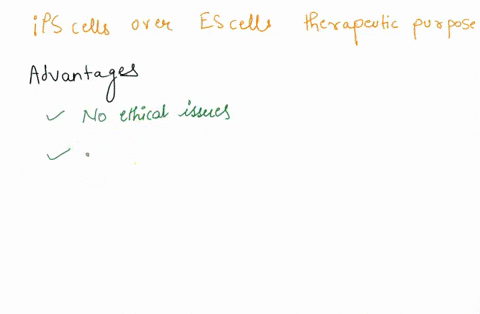 iPS cells over ES cells therapeutic purpose
Advantages
✓ No ethical issues
✓